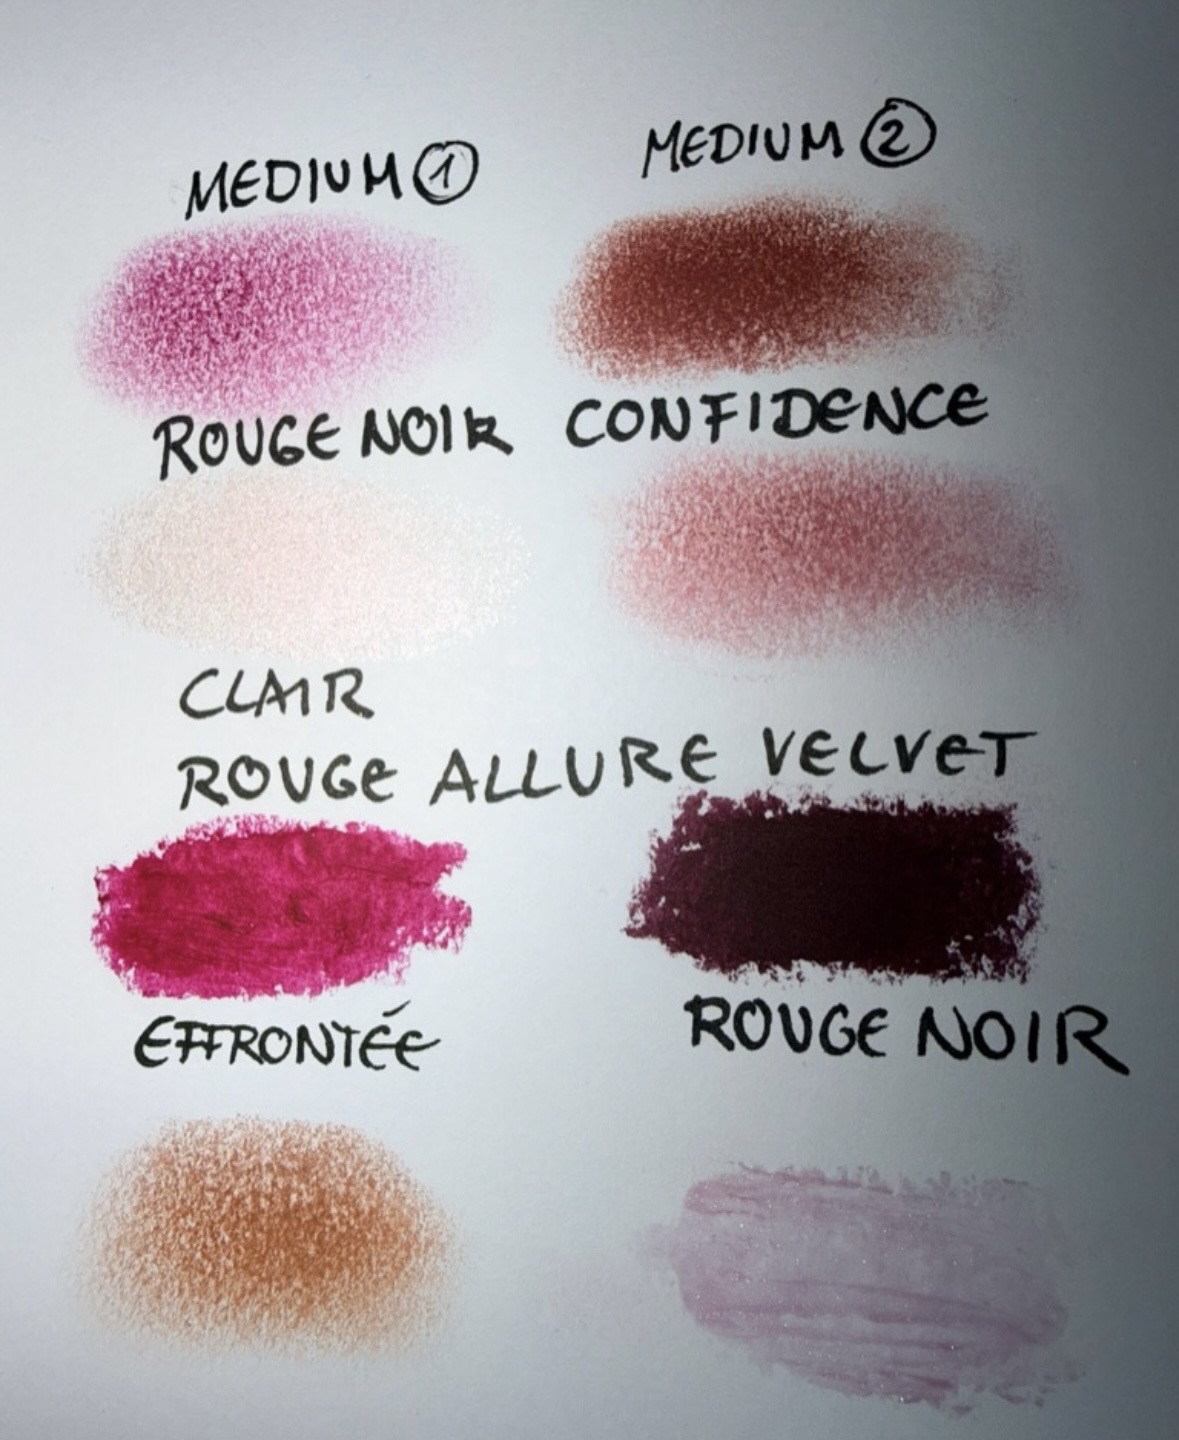 MEDIUM ① MEDIUM ②
ROUGE NOIR CONFIDENCE
CLAIR
ROUGE ALLURE VELVET
EFFRONTÉE ROUGE NOIR